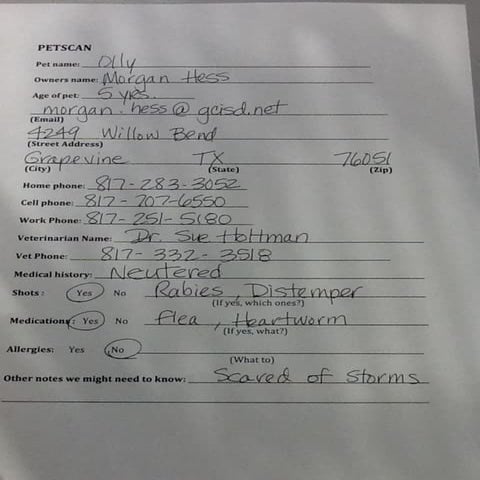 PETSCAN
Pet name: Olly
Owners name: Morgan Hess
Age of pet: 5 yrs.
morgan.hess@gcisd.net
(Email)
4249 Willow Bend
(Street Address)
Grapevine TX 76051
(City) (State) (Zip)
Home phone: 817-283-3052
Cell phone: 817-707-6550
Work Phone: 817-251-5180
Veterinarian Name: Dr. Sue Holtman
Vet Phone: 817-332-3518
Medical history: Neutered
Shots: Yes No Rabies, Distemper
(If yes, which ones?)
Medications: Yes No Flea, Heartworm
(If yes, what?)
Allergies: Yes No
(What to)
Other notes we might need to know: Scared of Storms